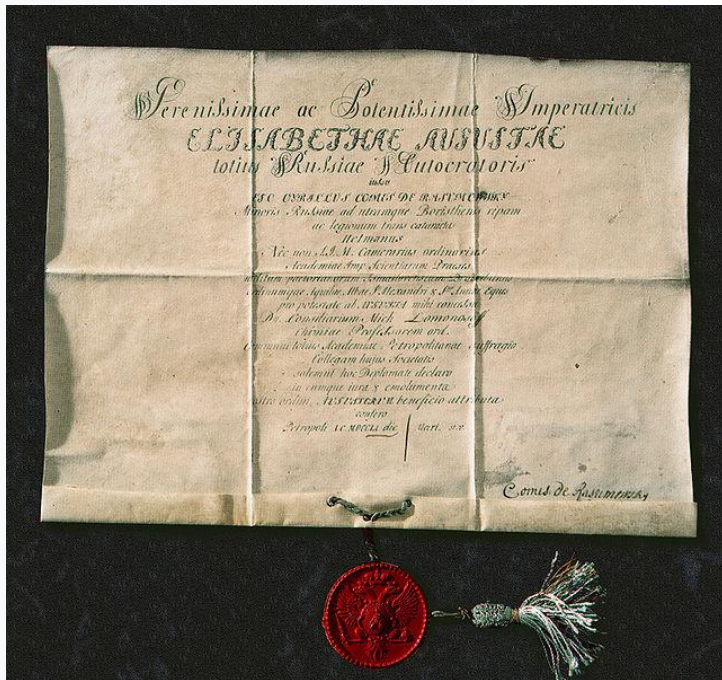 Serenissimae ac Potentissimae Imperatricis
ELISABETHAE AUGUSTAE
totius Russiae Autocratoris
iussu
EGO CYRILLUS COMES DE RASUMOWSKY
Minoris Russiae ad utramque Boristhenis ripam
ac legionum trans cataractas
Hetmanus
Nec non S.I.M. Camerarius ordinarius
Academiae Imp. Scientiarum Praeses
Alexandri & Sae Annae Eques
pro potestate ab AUGUSTA mihi concessa
Dn. Consiliarium Mich. Lomonosoff
Chimiae Professorem ord.
communi totius Academiae Petropolitanae suffragio
Collegam hujus Societatis
solemni hoc Diplomate declaro
eique iura & emolumenta
nostro ordini AUGUSTARUM beneficio attributa
confero
Petropoli die Mart.
Comes de Rasumowsky